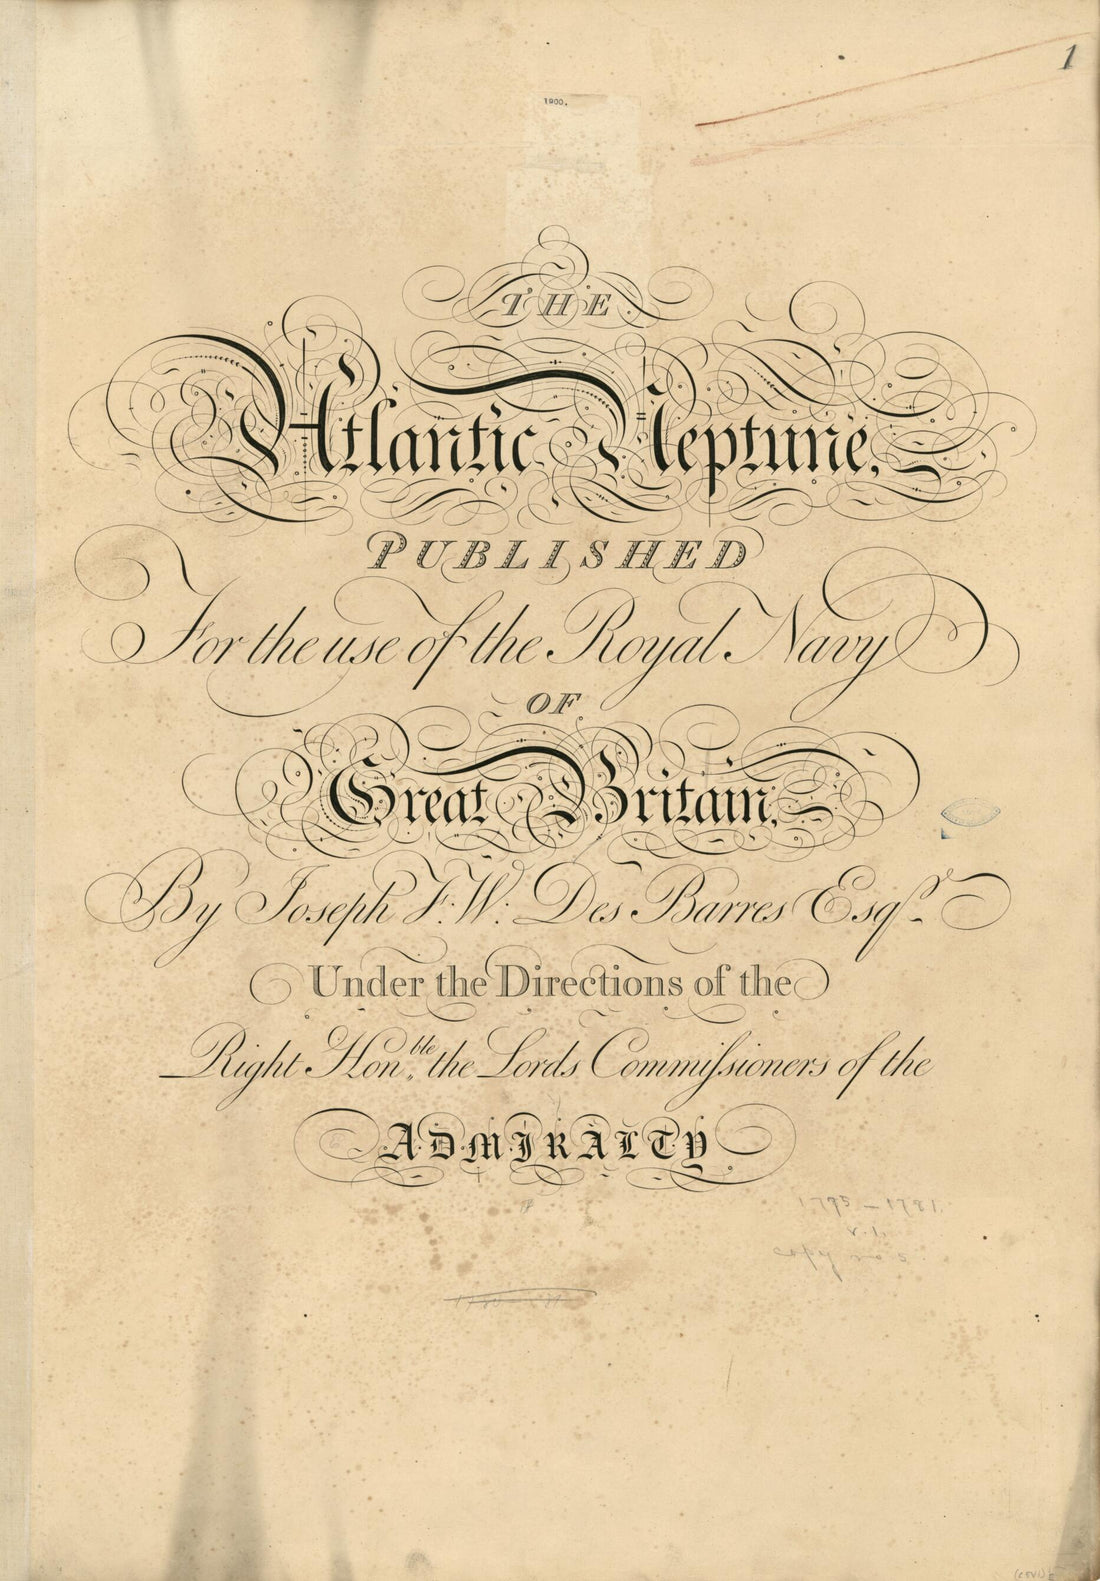 1
1900.
THE
Atlantic Neptune,
PUBLISHED
For the use of the Royal Navy
OF
Great Britain,
By Joseph F. W. Des Barres Esqr.
Under the Directions of the
Right Honble. the Lords Commiſsioners of the
ADMIRALTY
v. 1.
copy no 2